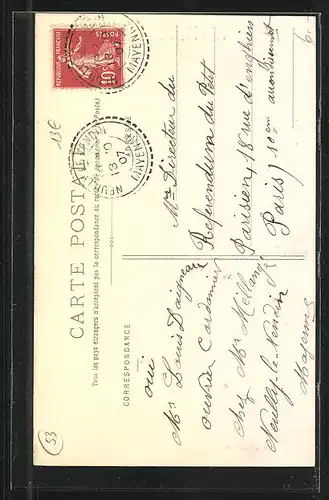 RÉPUBLIQUE FRANÇAISE
POSTES
10c
MAYENNE
13€
NEUILLY
10
13
07
MAYENNE
CARTE POSTALE
Tous les pays étrangers n'acceptent pas la correspondance au recto
CORRESPONDANCE
oui
Mr Louis
ouvrier Cordonnier
chez Mr
Neuilly-le-Vendin
Mayenne
Mr Directeur du
Referendum du Petit
Parisien, 18 rue d'enghien
Paris 10em arrondissement
53
6.-